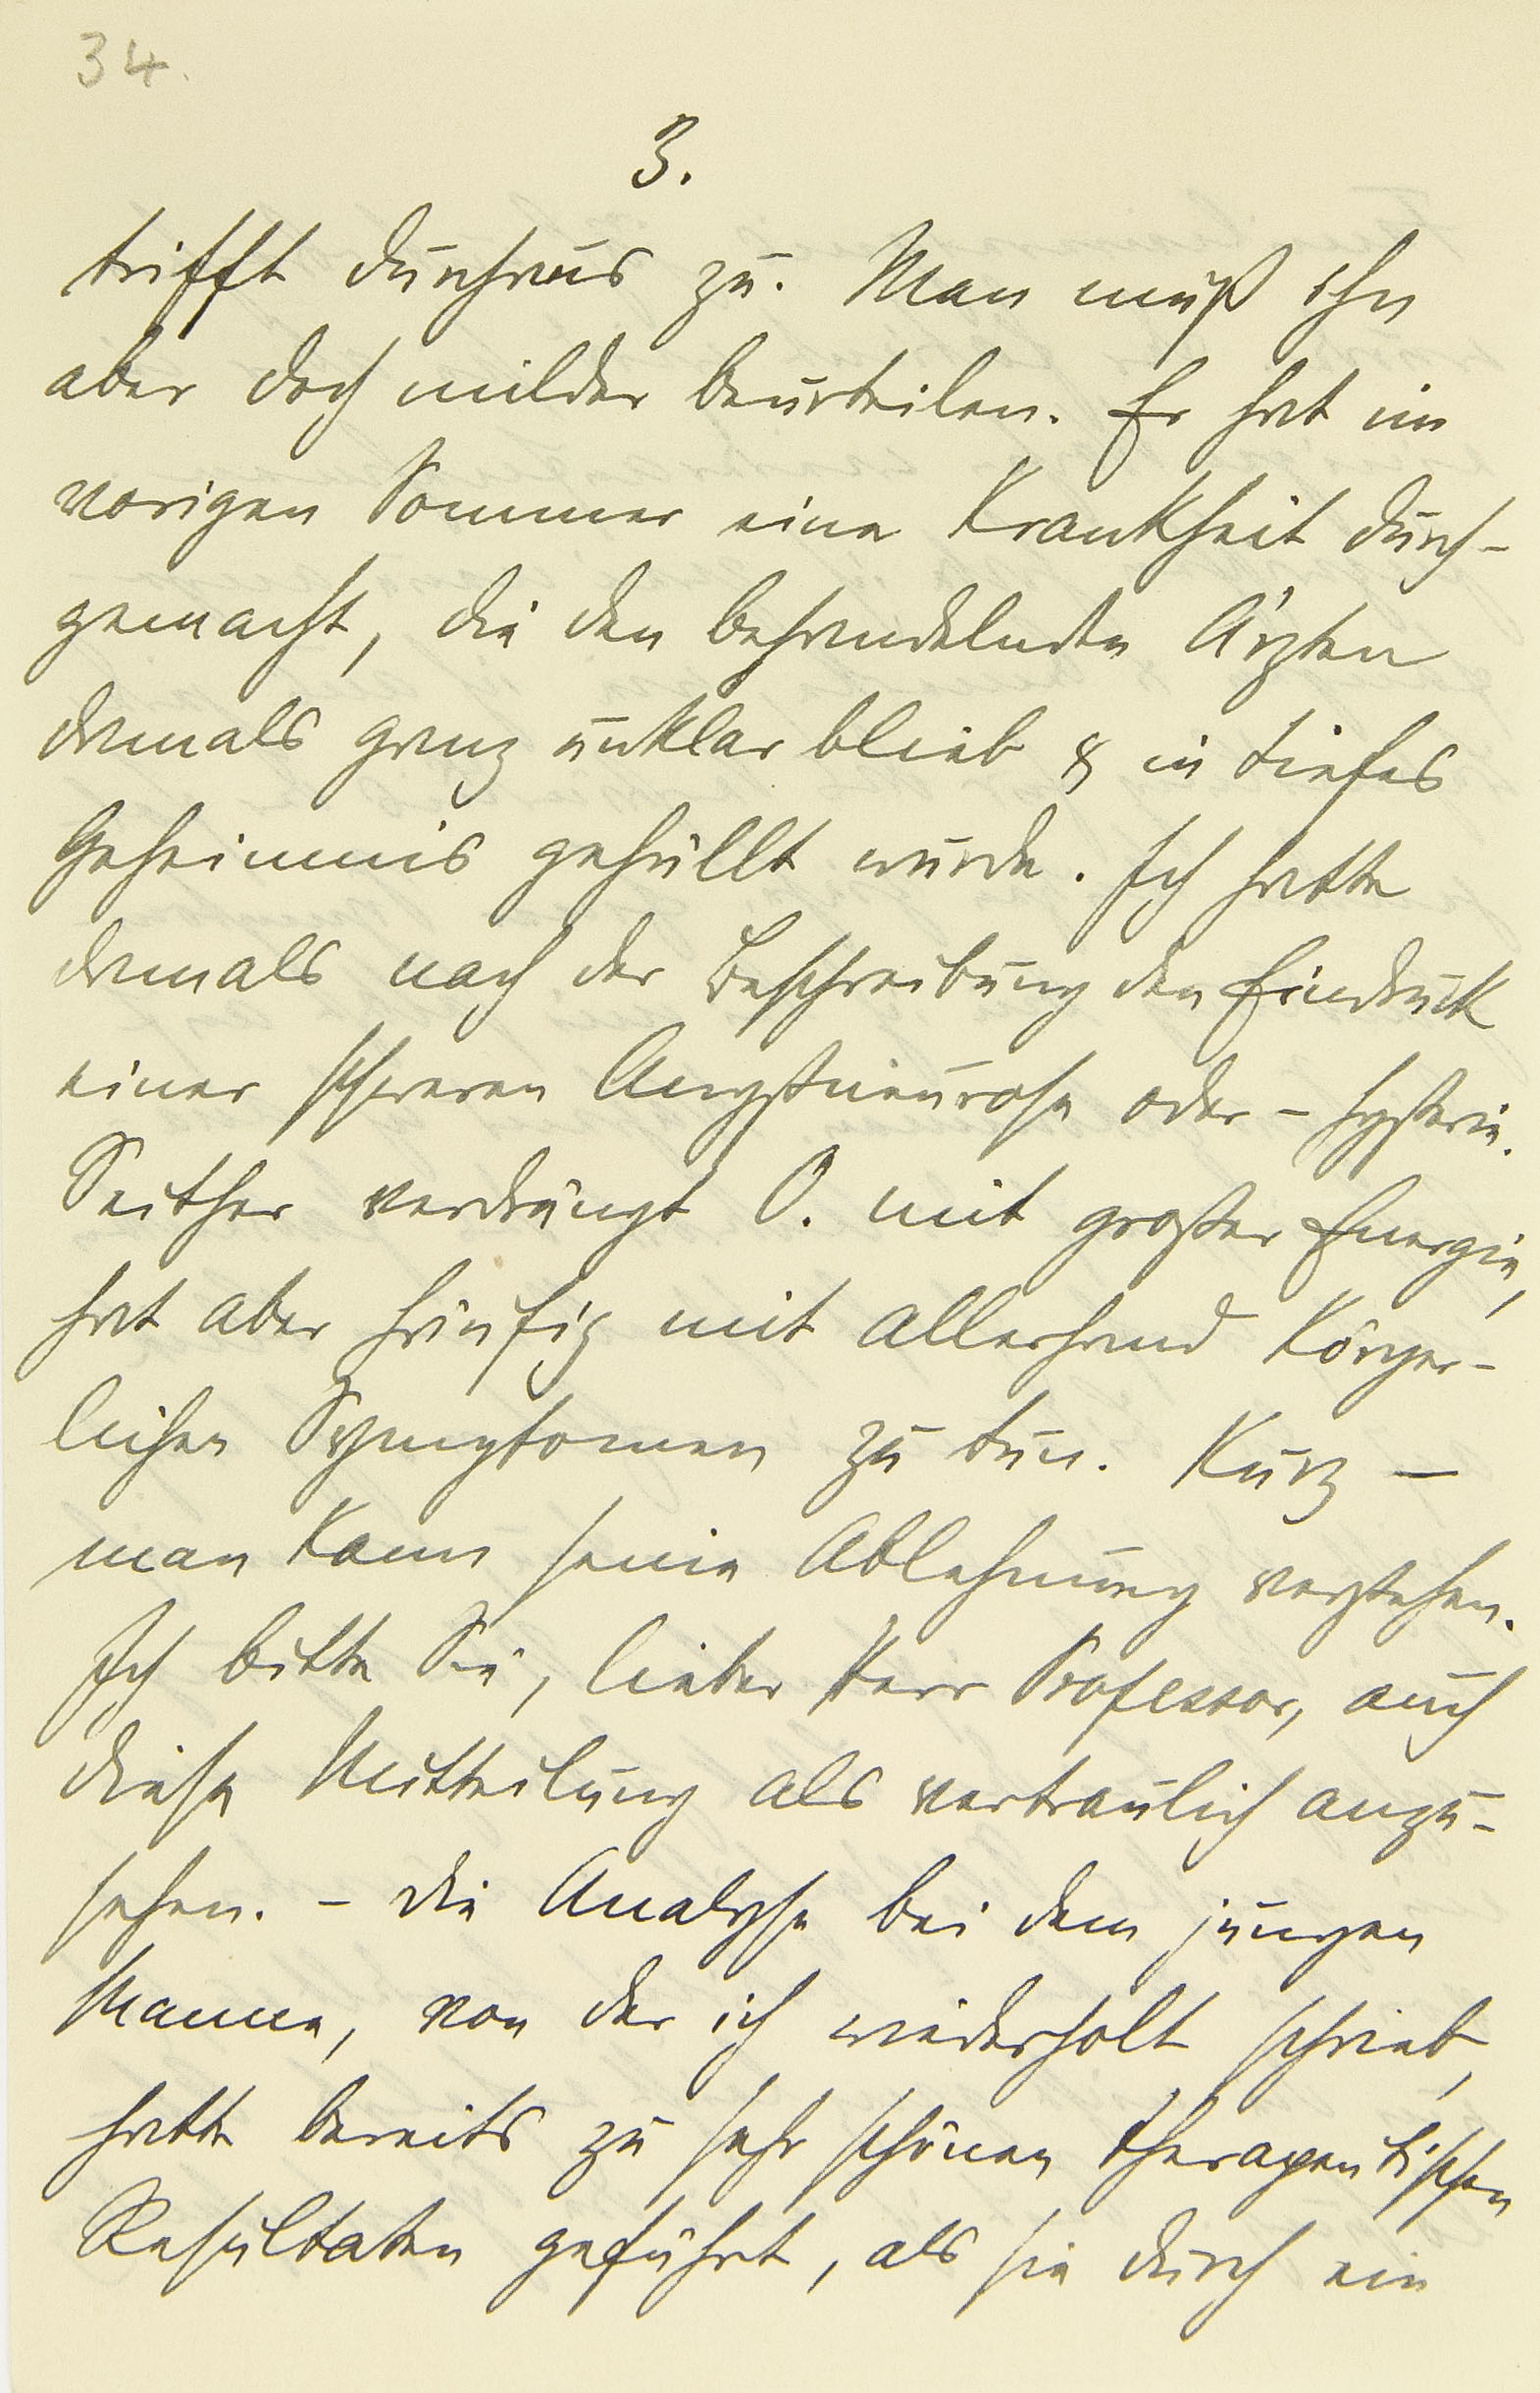 34.
3.
trifft durchaus zu. Man muß ihn
aber doch milder beurteilen. Er hat im
vorigen Sommer eine Krankheit durch-
gemacht, die den behandelnden Ärzten
damals ganz unklar blieb & in tiefes
Geheimnis gehüllt wurde. Ich hatte
damals nach der Beschreibung den Eindruck
einer schweren Angstneurose oder -hysterie.
Seither verdrängt O. mit großer Energie,
hat aber häufig mit allerhand körper-
lichen Symptomen zu tun. Kurz –
man kann seine Ablehnung verstehen.
Ich bitte Sie, lieber Herr Professor, auch
diese Mitteilung als vertraulich anzu-
sehen. – Die Analyse bei dem jungen
Manne, von der ich wiederholt schrieb,
hatte bereits zu sehr schönen therapeutischen
Resultaten geführt, als sie durch ein